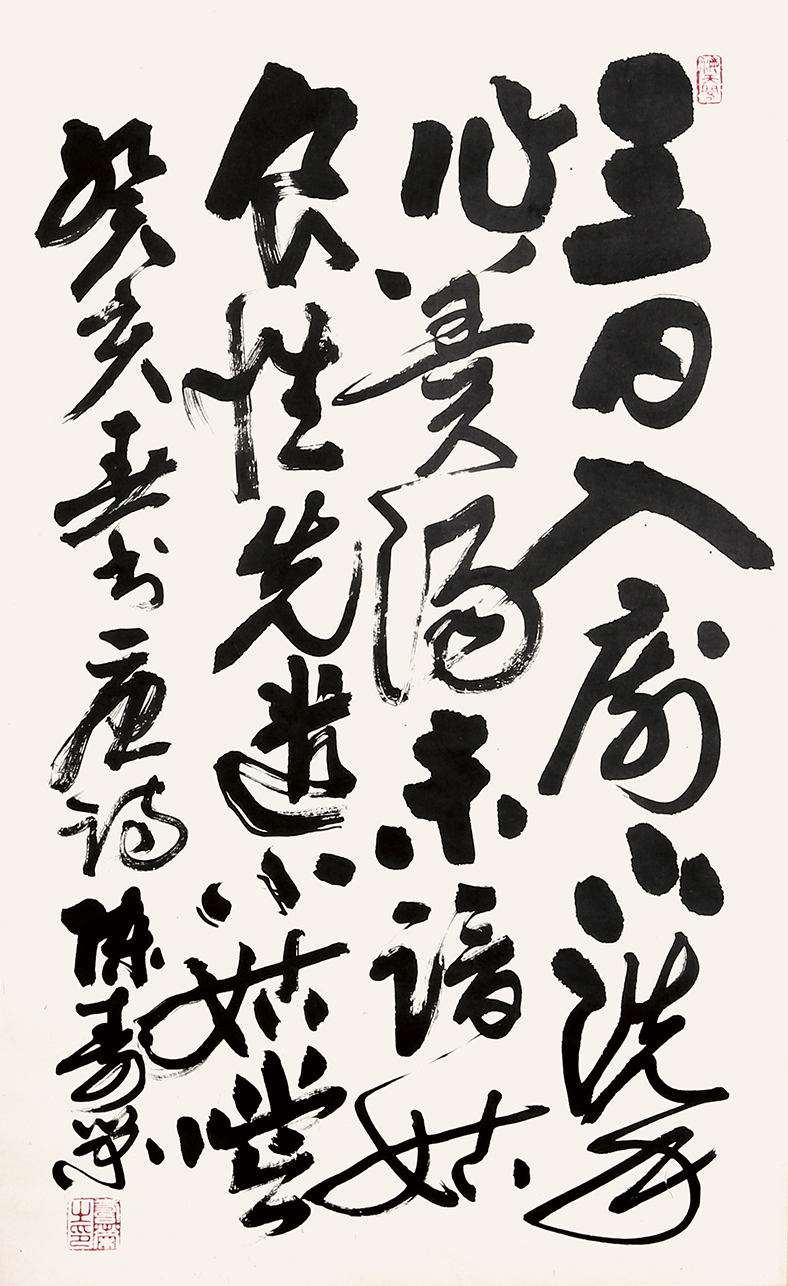 三日入廚下洗手
作羹湯未諳姑
食性先遣小姑嚐
癸亥春書唐詩陳壽榮
壽榮之印